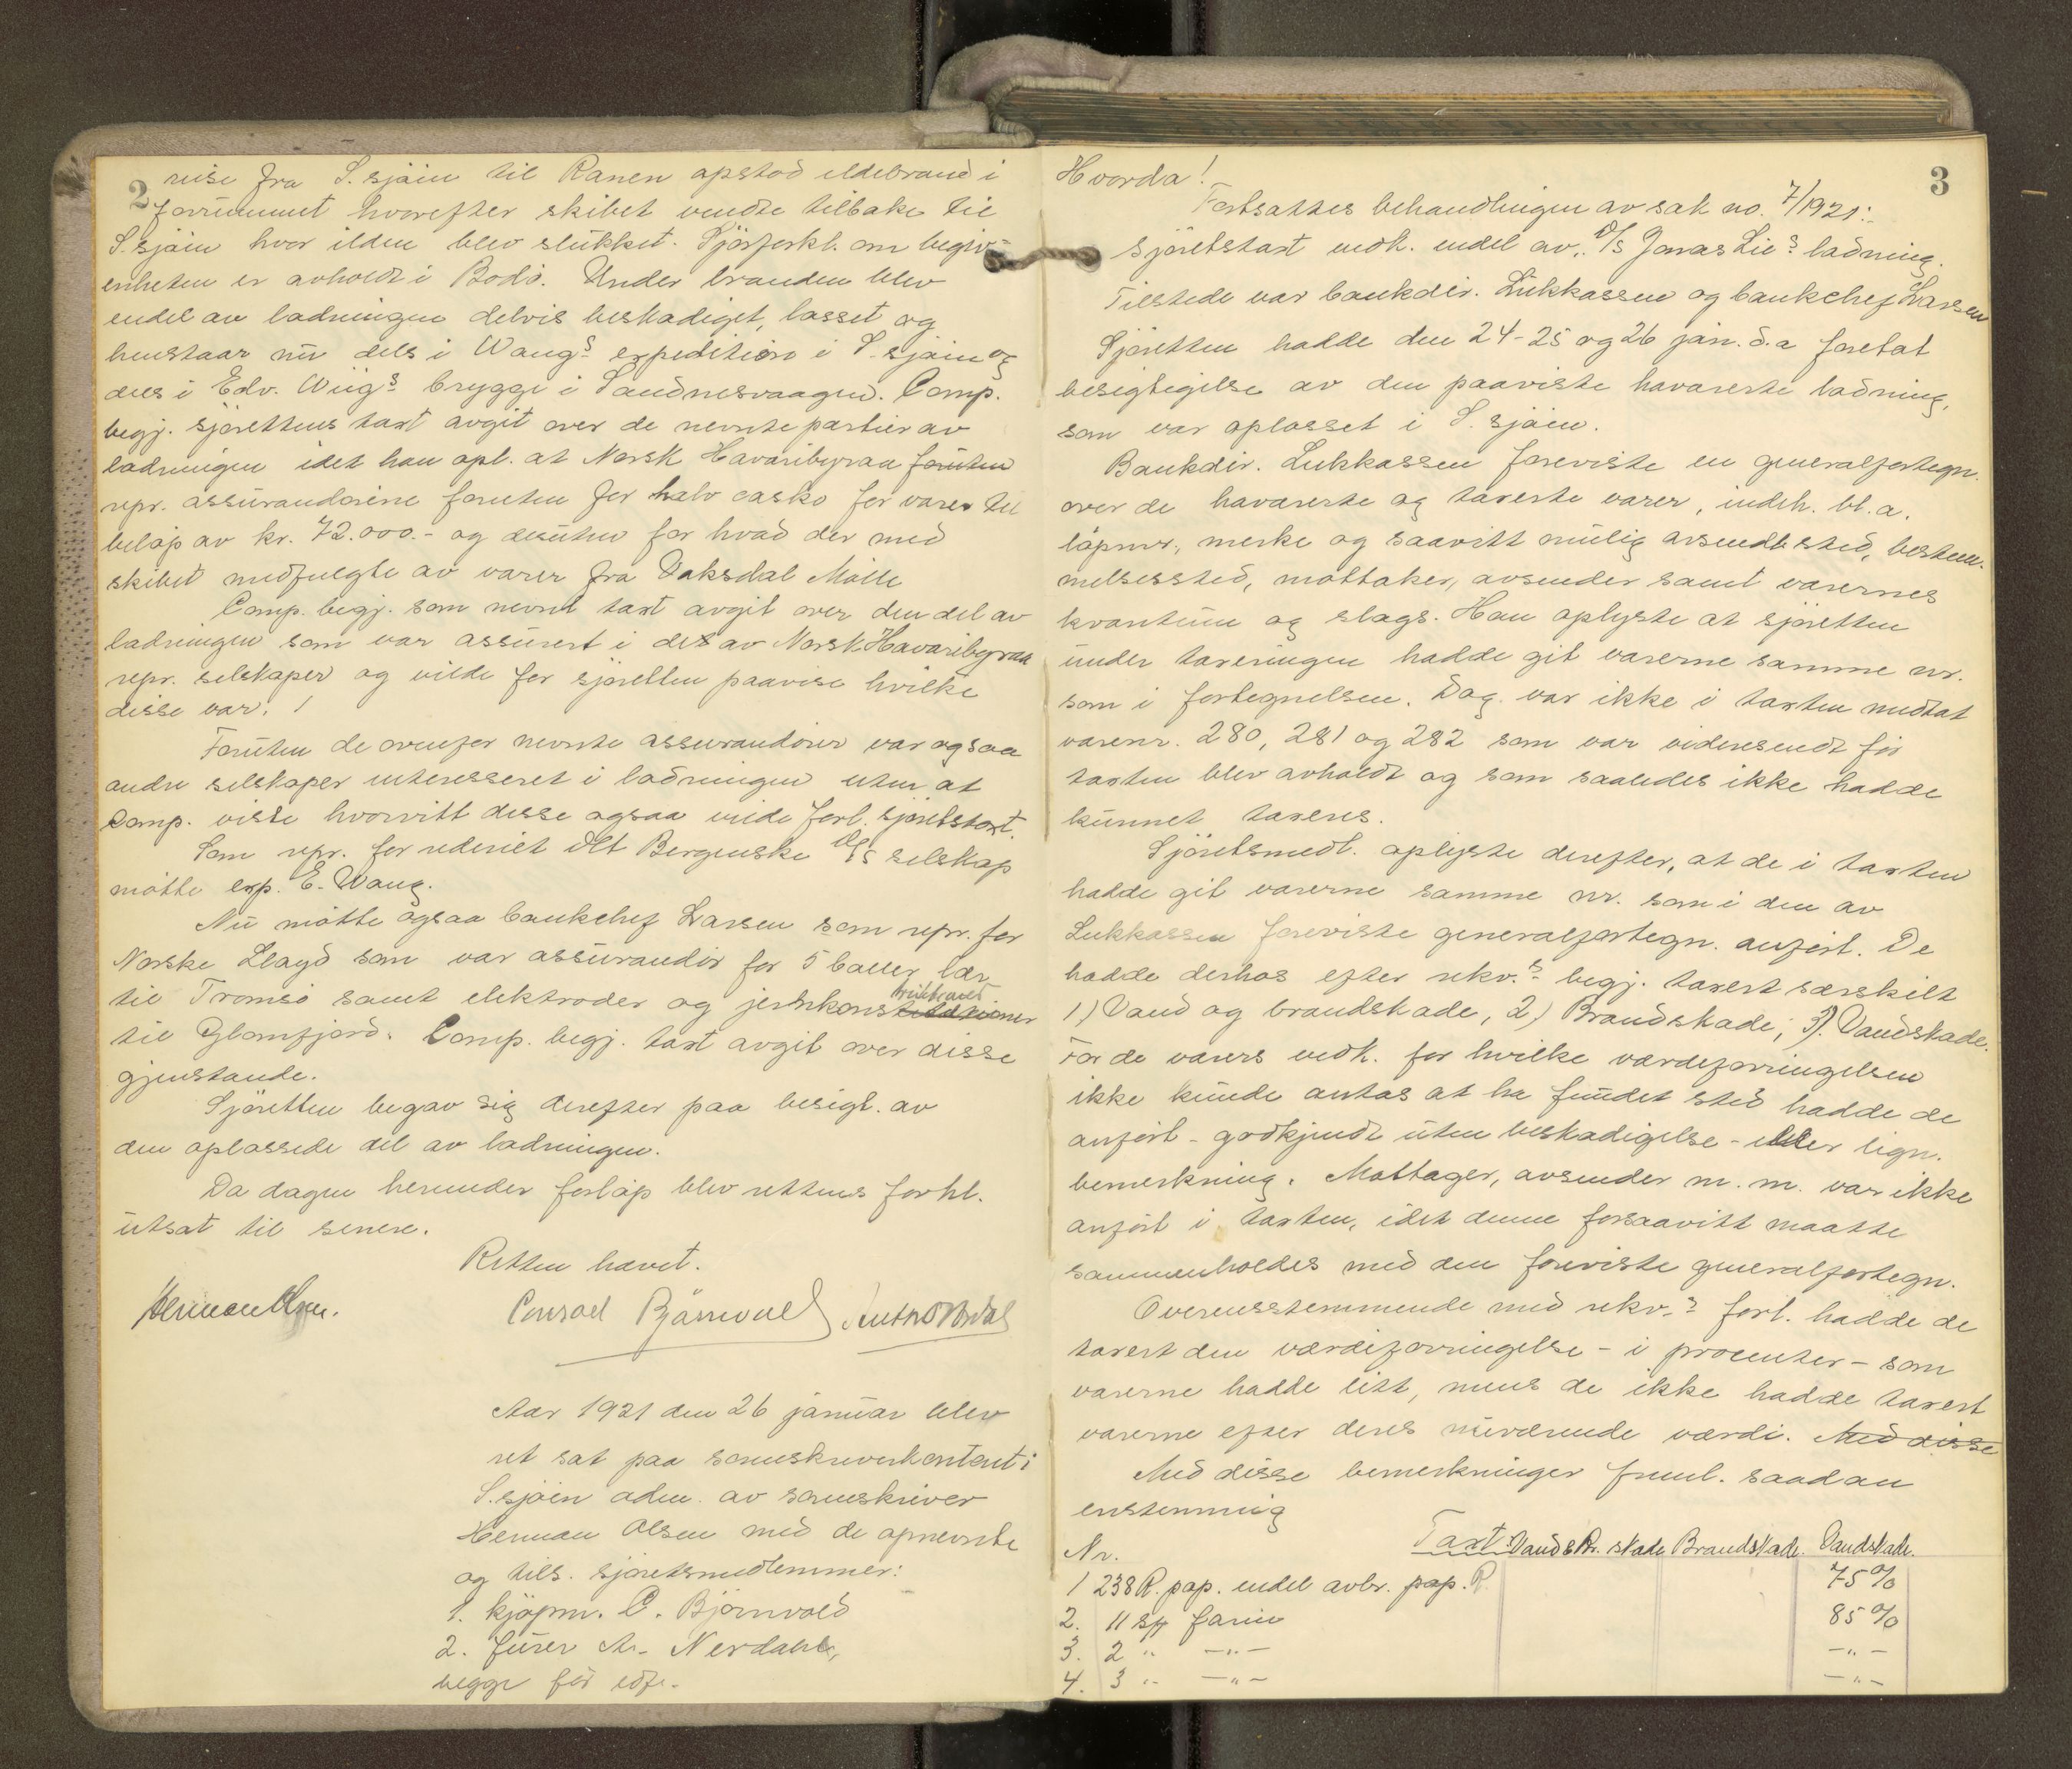 2
reise fra S.sjöen til Ranen opstod ildebrand i
forrummet hvorefter skibet vendte tilbake til
S.sjöen hvor ilden blev slukket. Sjöforkl. om begiv-
enheten er avholdt i Bodö. Under branden blev
endel av ladningen delvis beskadiget, losset og
henstaar nu dels i Waags expedition i S.sjöen og
dels i Edv. Wiigs brygge i Sandnesvaagen. Comp.
begj. sjörettens taxt avgit over de nevnte partier av
ladningen idet han opl. at Norsk Havaribyraa foruten
repr. assurandörene foruten for halv casko for varer til
belöp av kr. 72.000.- og desuten for hvad der med
skibet medfulgte av varer fra Vaksdal Mölle
Comp. begj. som nevnt taxt avgit over den del av
ladningen som var assurert i des av Norsk Havaribyraa
repr. selskaper og vilde for sjöretten paavise hvilke
disse var. /
Foruten de ovenfor nevnte assurandörer var ogsaa
andre selskaper interesseret i ladningen uten at
Comp. visste hvorvitt disse ogsaa vilde forl. sjöretstaxt.
Som repr. for rederiet Det Bergenske D/S selskap
mötte exp. E. Waag.
Nu mötte ogsaa bankchef Larsen som repr. for
Norske Lloyd som var assurandör for 5 baller lær
til Tromsö samt elektroder og jernkonstruktioner
til Glomfjord. Comp. begj. taxt avgit over disse
gjenstande.
Sjöretten begav sig derefter paa besigt. av
den oplossede del av ladningen.
Da dagen herunder forlöp blev rettens forhl.
utsat til senere.
Retten hævet.
Herman Olsen. Conrad Björnvold
Aar 1921 den 26 januar blev
ret sat paa sorenskriverkontoret i
S.sjöen adm. av sorenskriver
Herman Olsen med de opnevnte
og tils. sjöretsmedlemmer:
1. kjöpm. C. Björnvold
2. furer A. Nerdahl,
begge för edf.
3
Hvorda!
Fortsattes behandlingen av sak no. 7/1921:
Sjöretstaxt vedk. endel av D/S Jonas Lies ladning.
Tilstede var bankdir. Lukkassen og bankchef Larsen
Sjöretten hadde den 24-25 og 26 jan. d.a foretat
besigtigelse av den paaviste havarerte ladning,
som var oplosset i S.sjöen.
Bankdir. Lukkassen foreviste en generalfortegn.
over de havarerte og taxerte varer, indeh. bl.a.
löpenr, merke og saavitt mulig avsendt sted, bestem-
melsessted, mottaker, avsender samt varernes
kvantum og slags. Han oplyste at sjöretten
under taxeringen hadde git varerne samme nr.
som i fortegnelsen. Dog var ikke i taxten medtat
varenr. 280, 281 og 282 som var videresendt för
taxten blev avholdt og som saaledes ikke hadde
kunnet taxeres.
Sjöretsmedl. oplyste derefter, at de i taxten
hadde git varerne samme nr. som i den av
Lukkassen foreviste generalfortegn. anfört. De
hadde derhos efter rekv.s begj. taxert særskilt
1) Vand og brandskade, 2) Brandskade, 3). Vandskade.
For de varers vedk. for hvilke værdeforringelsen
ikke kunde antas at ha fundet sted hadde de
anfört - godkjendt uten beskadigelse - eller lign.
bemerkning. Mottager, avsender m. m. var ikke
anfört i taxten, idet denne forsaavitt maatte
sammenholdes med den foreviste generalfortegn.
Overensstemmende med rekv.s forl. hadde de
taxert den værdiforringelse - i procenter - som
varerne hadde litt, mens de ikke hadde taxert
varerne efter deres nuværende værdi. Med disse
Med disse bemerkninger freml. saadan
enstemmig
Taxt:
Nr. Vand & Br. skade Brandskade. Vandskade.
1 238 R. pap. endel avbr. pap. R 75%
2. 11 sk farin 85%
3. 2 " -"- -"-
4. 3 " -"- -"-